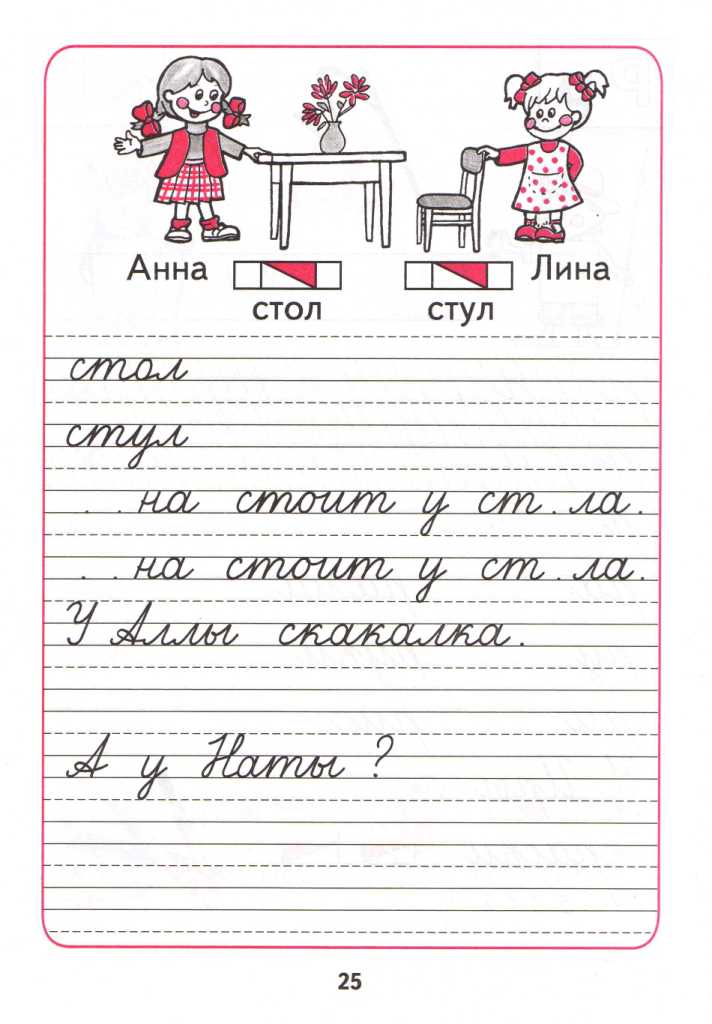 Анна Лина
стол стул
стол
стул
. . на стоит у ст . ла .
. . на стоит у ст . ла .
У Аллы скакалка .
А у Наты ?
25